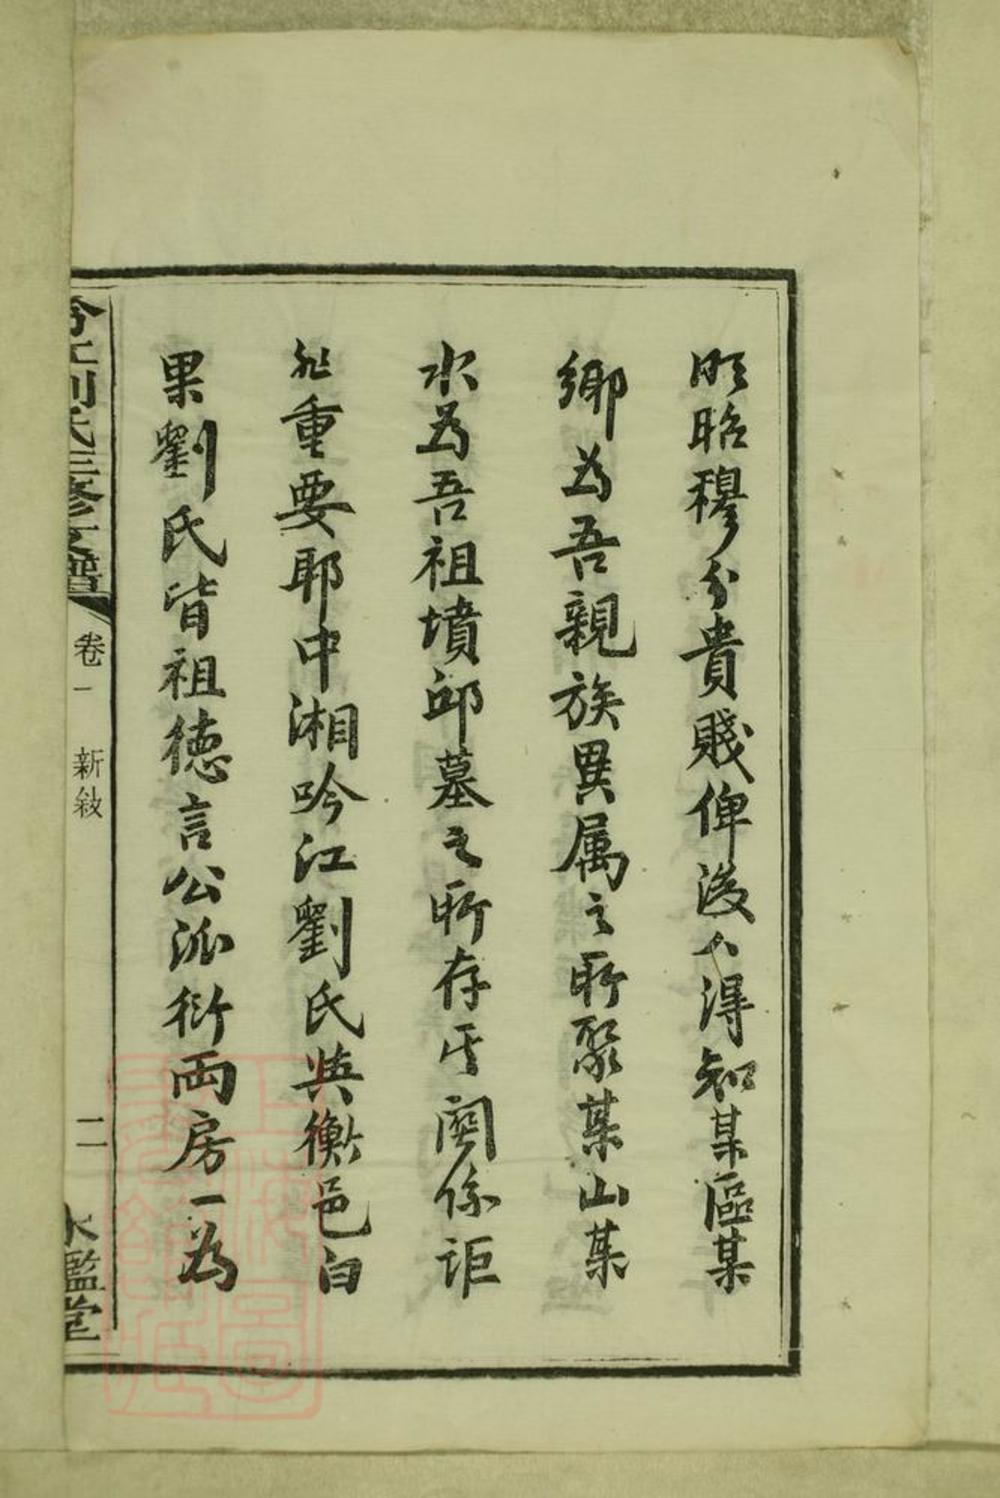 明昭穆分貴賤俾後人得知某區某
鄉為吾親族異属之所聚某山某
水為吾祖墳邱墓之所存其関係詎
非重要耶中湘吟江劉氏與衡邑白
果劉氏皆祖德言公派衍兩房一為
吟江劉氏三修支譜
卷一 新敘
二
水鑑堂